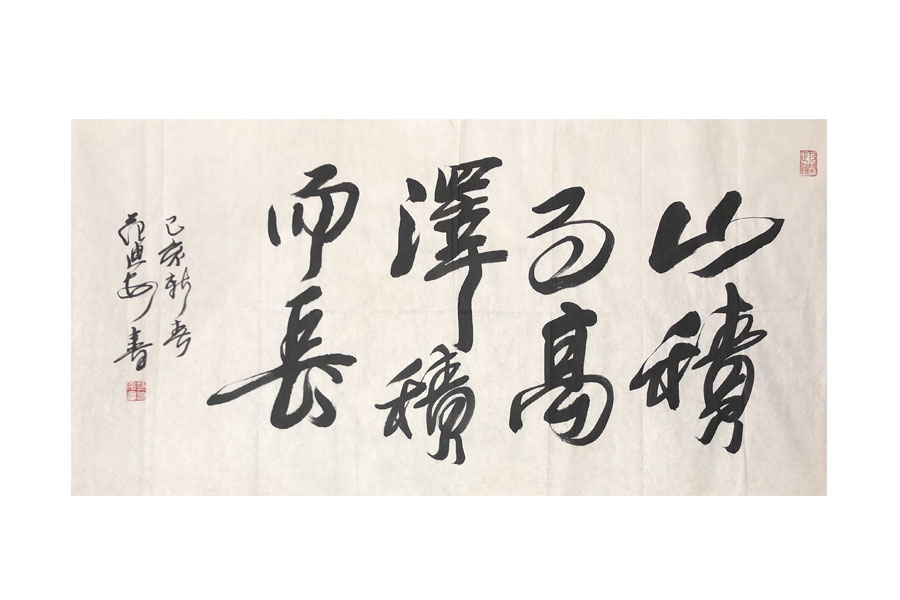 山積
而高
澤積
而長
己亥新春
范迪安書